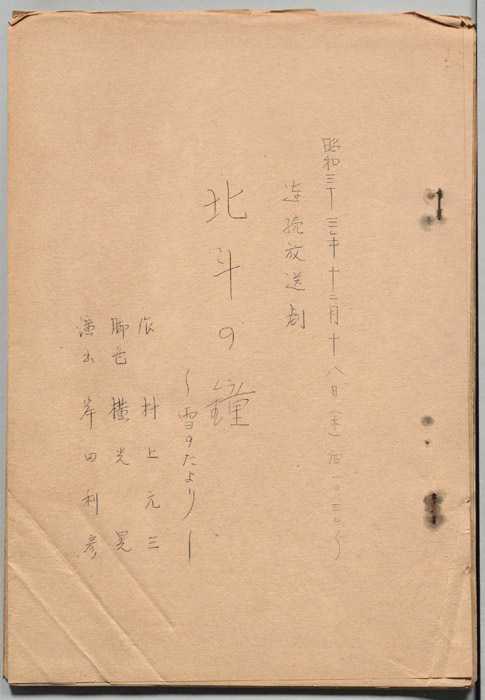 昭和三十三年十二月十八日(木)后一〇三〇〜
連続放送劇
北斗の鐘
〜雪のたより〜
作 村上元三
脚色 横光晃
演出 岸田利彦